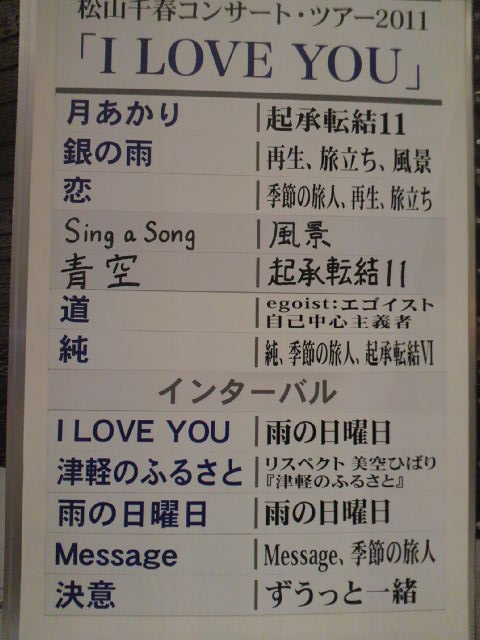 松山千春コンサート・ツアー2011
「I LOVE YOU」
月あかり 起承転結11
銀の雨 再生、旅立ち、風景
恋 季節の旅人、再生、旅立ち
Sing a Song 風景
青空 起承転結11
道 egoist:エゴイスト
自己中心主義者
純 純、季節の旅人、起承転結VI
インターバル
I LOVE YOU 雨の日曜日
津軽のふるさと リスペクト 美空ひばり
『津軽のふるさと』
雨の日曜日 雨の日曜日
Message Message、季節の旅人
決意 ずうっと一緒